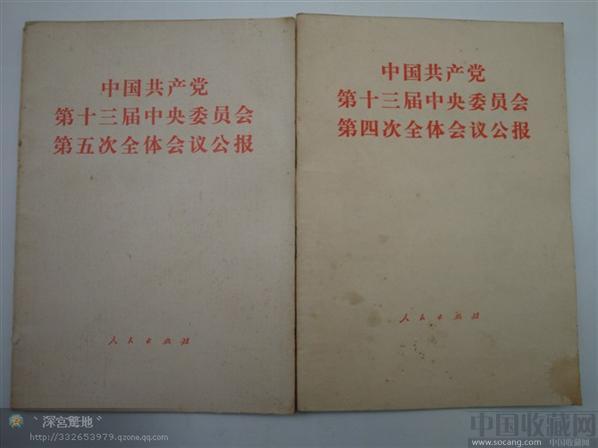 中国共产党
第十三届中央委员会
第五次全体会议公报
人民出版社
中国共产党
第十三届中央委员会
第四次全体会议公报
人民出版社
深宫冕地
http://332653979.qzone.qq.com
中国收藏网
www.socang.com 中国收藏网